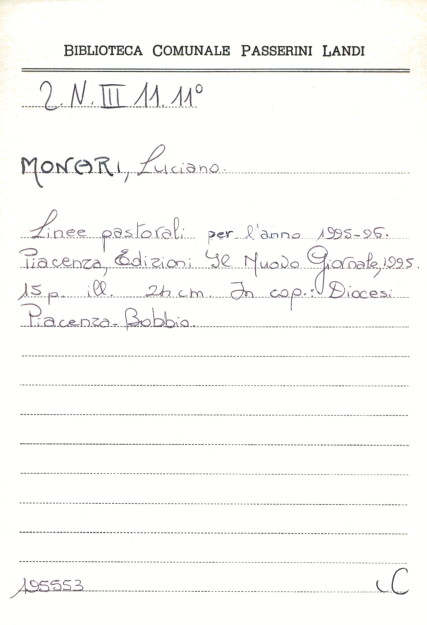 BIBLIOTECA COMUNALE PASSERINI LANDI
2.N.III 11.11°
MONARI, Luciano.
Linee pastorali per l'anno 1995-96.
Piacenza, Edizioni Il Nuovo Giornale, 1995.
15 p. ill. 24 cm. In cop.: Diocesi
Piacenza-Bobbio.
195553 C